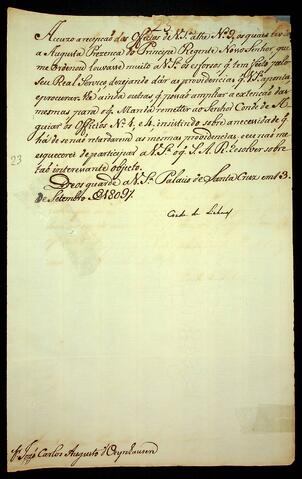 Accuzo a recepção dos Officios de V.S.ª até o N.º 9, os quaes levei
a Augusta Prezença do Principe Regente Nosso Senhor, que
me Ordenou louvasse muito a V.S.ª os esforsos q̃ tem feito pelo
seu Real Serviço, dezejando dar as providencias q̃ V.S.ª aponta,
e procurar lhe ainda outras q̃ possaõ ampliar a extençaõ das
mesmas para o q̃ Manda remetter ao Senhor Conde de A
guiar os Officios N.º 4, e 4, insistindo sobre a necessidade q̃
há de se naõ retardarem as mesmas providencias, e eu naõ me
esquecerei de participar a V.S.ª o q̃ S. A. R. rezolver sobre
taõ interessante objecto.
Deos guarde a V.S.ª Palacio de Santa Cruz em 13
de Setembro de 1809
23
Conde de Linhares
S.r João Carlos Augusto d'Oeynhausen